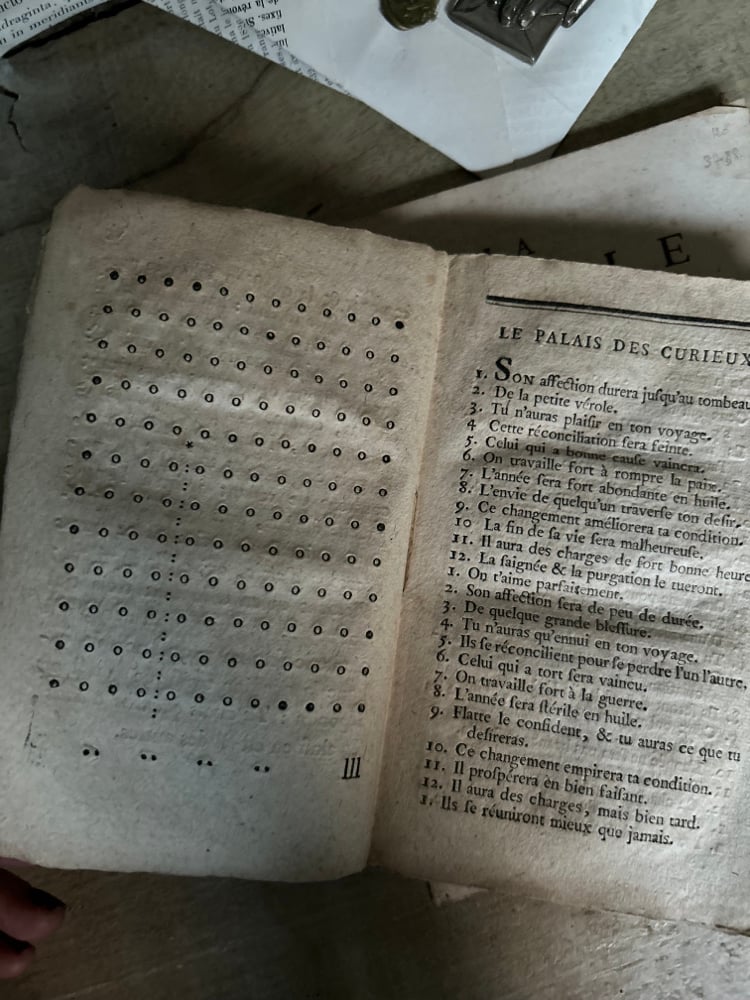 draginta,
in meridians
de la révo
fixes. Si
lative
37-88.
L A
L E
III
LE PALAIS DES CURIEUX
1. SON affection durera juſqu'au tombeau
2. De la petite vérole.
3. Tu n'auras plaiſir en ton voyage.
4 Cette réconciliation ſera feinte.
5. Celui qui a bonne cauſe vaincra.
6. On travaille fort à rompre la paix.
7. L'année ſera fort abondante en huile.
8. L'envie de quelqu'un traverſe ton deſir.
9. Ce changement améliorera ta condition.
10 La fin de ſa vie ſera malheureuſe.
11. Il aura des charges de fort bonne heure
12. La ſaignée & la purgation le tueront.
1. On t'aime parfaitement.
2. Son affection ſera de peu de durée.
3. De quelque grande bleſſure.
4. Tu n'auras qu'ennui en ton voyage.
5. Ils ſe réconcilient pour ſe perdre l'un l'autre.
6. Celui qui a tort ſera vaincu.
7. On travaille fort à la guerre.
8. L'année ſera ſtérile en huile.
9. Flatte le confident, & tu auras ce que tu
deſireras.
10. Ce changement empirera ta condition.
11. Il proſpérera en bien faiſant.
12. Il aura des charges, mais bien tard.
1. Ils ſe réuniront mieux que jamais.